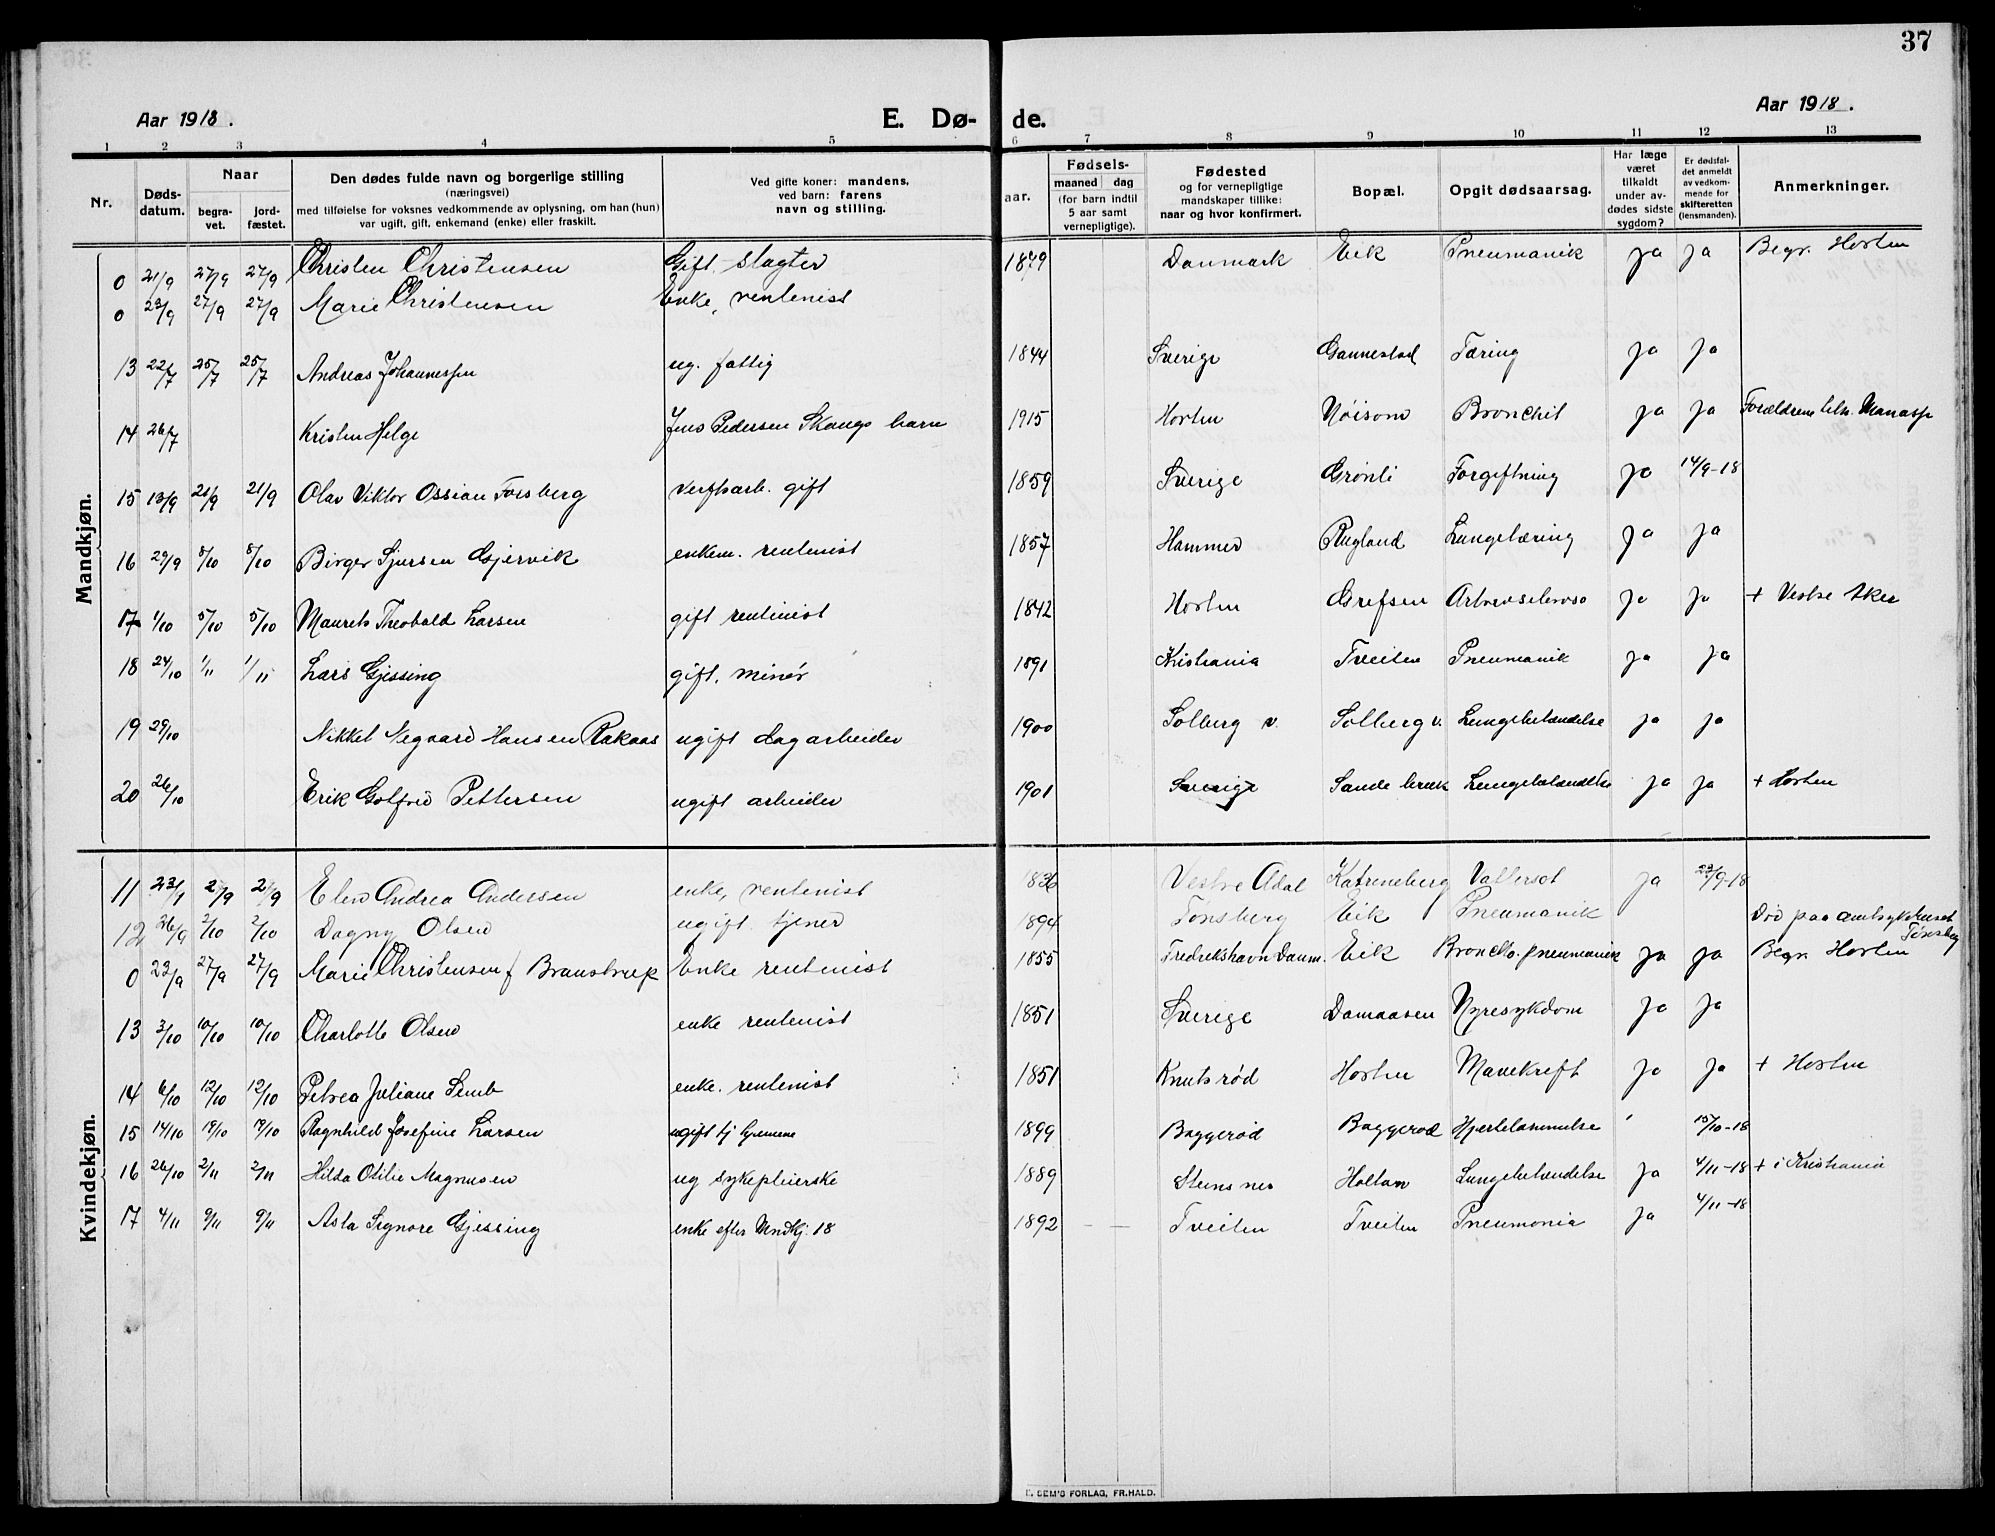 37
Aar 1918.
E. Dø-
de.
Aar 1918.
1 2 3 4 5 6 7 8 9 10 11 12 13
Nr.
Døds-
datum.
Naar
begra-
vet.
jord-
fæstet.
Den dødes fulde navn og borgerlige stilling
(næringsvei)
med tilføielse for voksnes vedkommende av oplysning, om han (hun)
var ugift, gift, enkemand (enke) eller fraskilt.
Ved gifte koner: mandens,
ved barn: farens
navn og stilling.
aar.
Fødsels-
maaned dag
(for barn indtil
5 aar samt
vernepligtige).
Fødested
og for vernepligtige
mandskaper tillike:
naar og hvor konfirmert.
Bopæl.
Opgit dødsaarsag.
Har læge
været
tilkaldt
under av-
dødes sidste
sygdom?
Er dødsfal-
det anmeldt
av vedkom-
mende for
skifteretten
(lensmanden).
Anmerkninger.
Mandkjøn.
0 21/9 27/9 27/9 Christen Christensen Gift. slagter 1879 Danmark Eik Pneumanik ja ja Begr. Horten
0 23/9 27/9 27/9 Marie Christensen Enke, rentenist
13 22/7 25/7 25/7 Andreas Johannessen ug. fattig 1844 Sverige Gannestad Tæring ja ja
14 26/7 Kristen Helge Jens Pedersen Skaugs barn 1915 Horten Nöisom Bronchit ja ja Forældrene
15 13/9 21/9 21/9 Olav Viktor Ossian Forsberg verftsarb. gift 1859 Sverige Grønli Forgiftning ja 14/9-18
16 29/9 8/10 8/10 Birger Sjursen Gjervik enkem. rentenist 1857 Hammer Rugland Lungetæring ja ja
17 1/10 5/10 5/10 Maurits Theobald Larsen gift rentenist 1842 Horten Grefsen ja ja + Vestre Aker
18 24/10 1/11 1/11 Lars Gjessing gift. minör 1891 Kristiania Tveiten Pneumanik ja ja
19 29/10 Nikkel Negaard Hansen Rakaas ugift dagarbeider 1900 Solberg v. Solberg v. Lungebetændelse ja ja
20 26/10 Erik Gotfred Pettersen ugift arbeider 1901 Sverige Sande bruk Lungebetændelse ja ja + Horten
Kvindekjøn.
11 23/9 27/9 27/9 Elen Andrea Andersen enke, rentenist 1836 Vestre Adal Katreneberg Vattersot ja 23/9-18
12 26/9 2/10 2/10 Dagny Olsen ugift tjener 1894 Tønsberg Eik Pneumanik Död paa amtsykehuset
Tönsberg
0 23/9 27/9 27/9 Marie Christensen f Branstrup Enke rentenist 1855 Fredrikshavn Danm. Eik Broncho. pneumanik ja ja Begr. Horten
13 3/10 10/10 10/10 Charlotte Olsen enke rentenist 1851 Sverige Damaasen Nyresykdom ja ja
14 6/10 12/10 12/10 Petrea Juliane Semb enke. rentenist 1851 Knutsrød Horten Mavekreft ja ja + Horten
15 14/10 19/10 19/10 Ragnhild Josefine Larsen ugift tj hjemme 1899 Baggerød Baggerød Hjertelammelse 15/10-18
16 26/10 2/11 2/11 Hilda Otilie Magnusen ug sykepleierske 1889 Steinsnes Holtan Lungebetændelse ja 4/11-18 + i Kristiania
17 4/11 9/11 9/11 Asta Signore Gjessing enke efter Mndkj. 18 1892 Tveiten Tveiten Pneumonia ja 4/11-18
SEM'S FORLAG, FR.HALD.